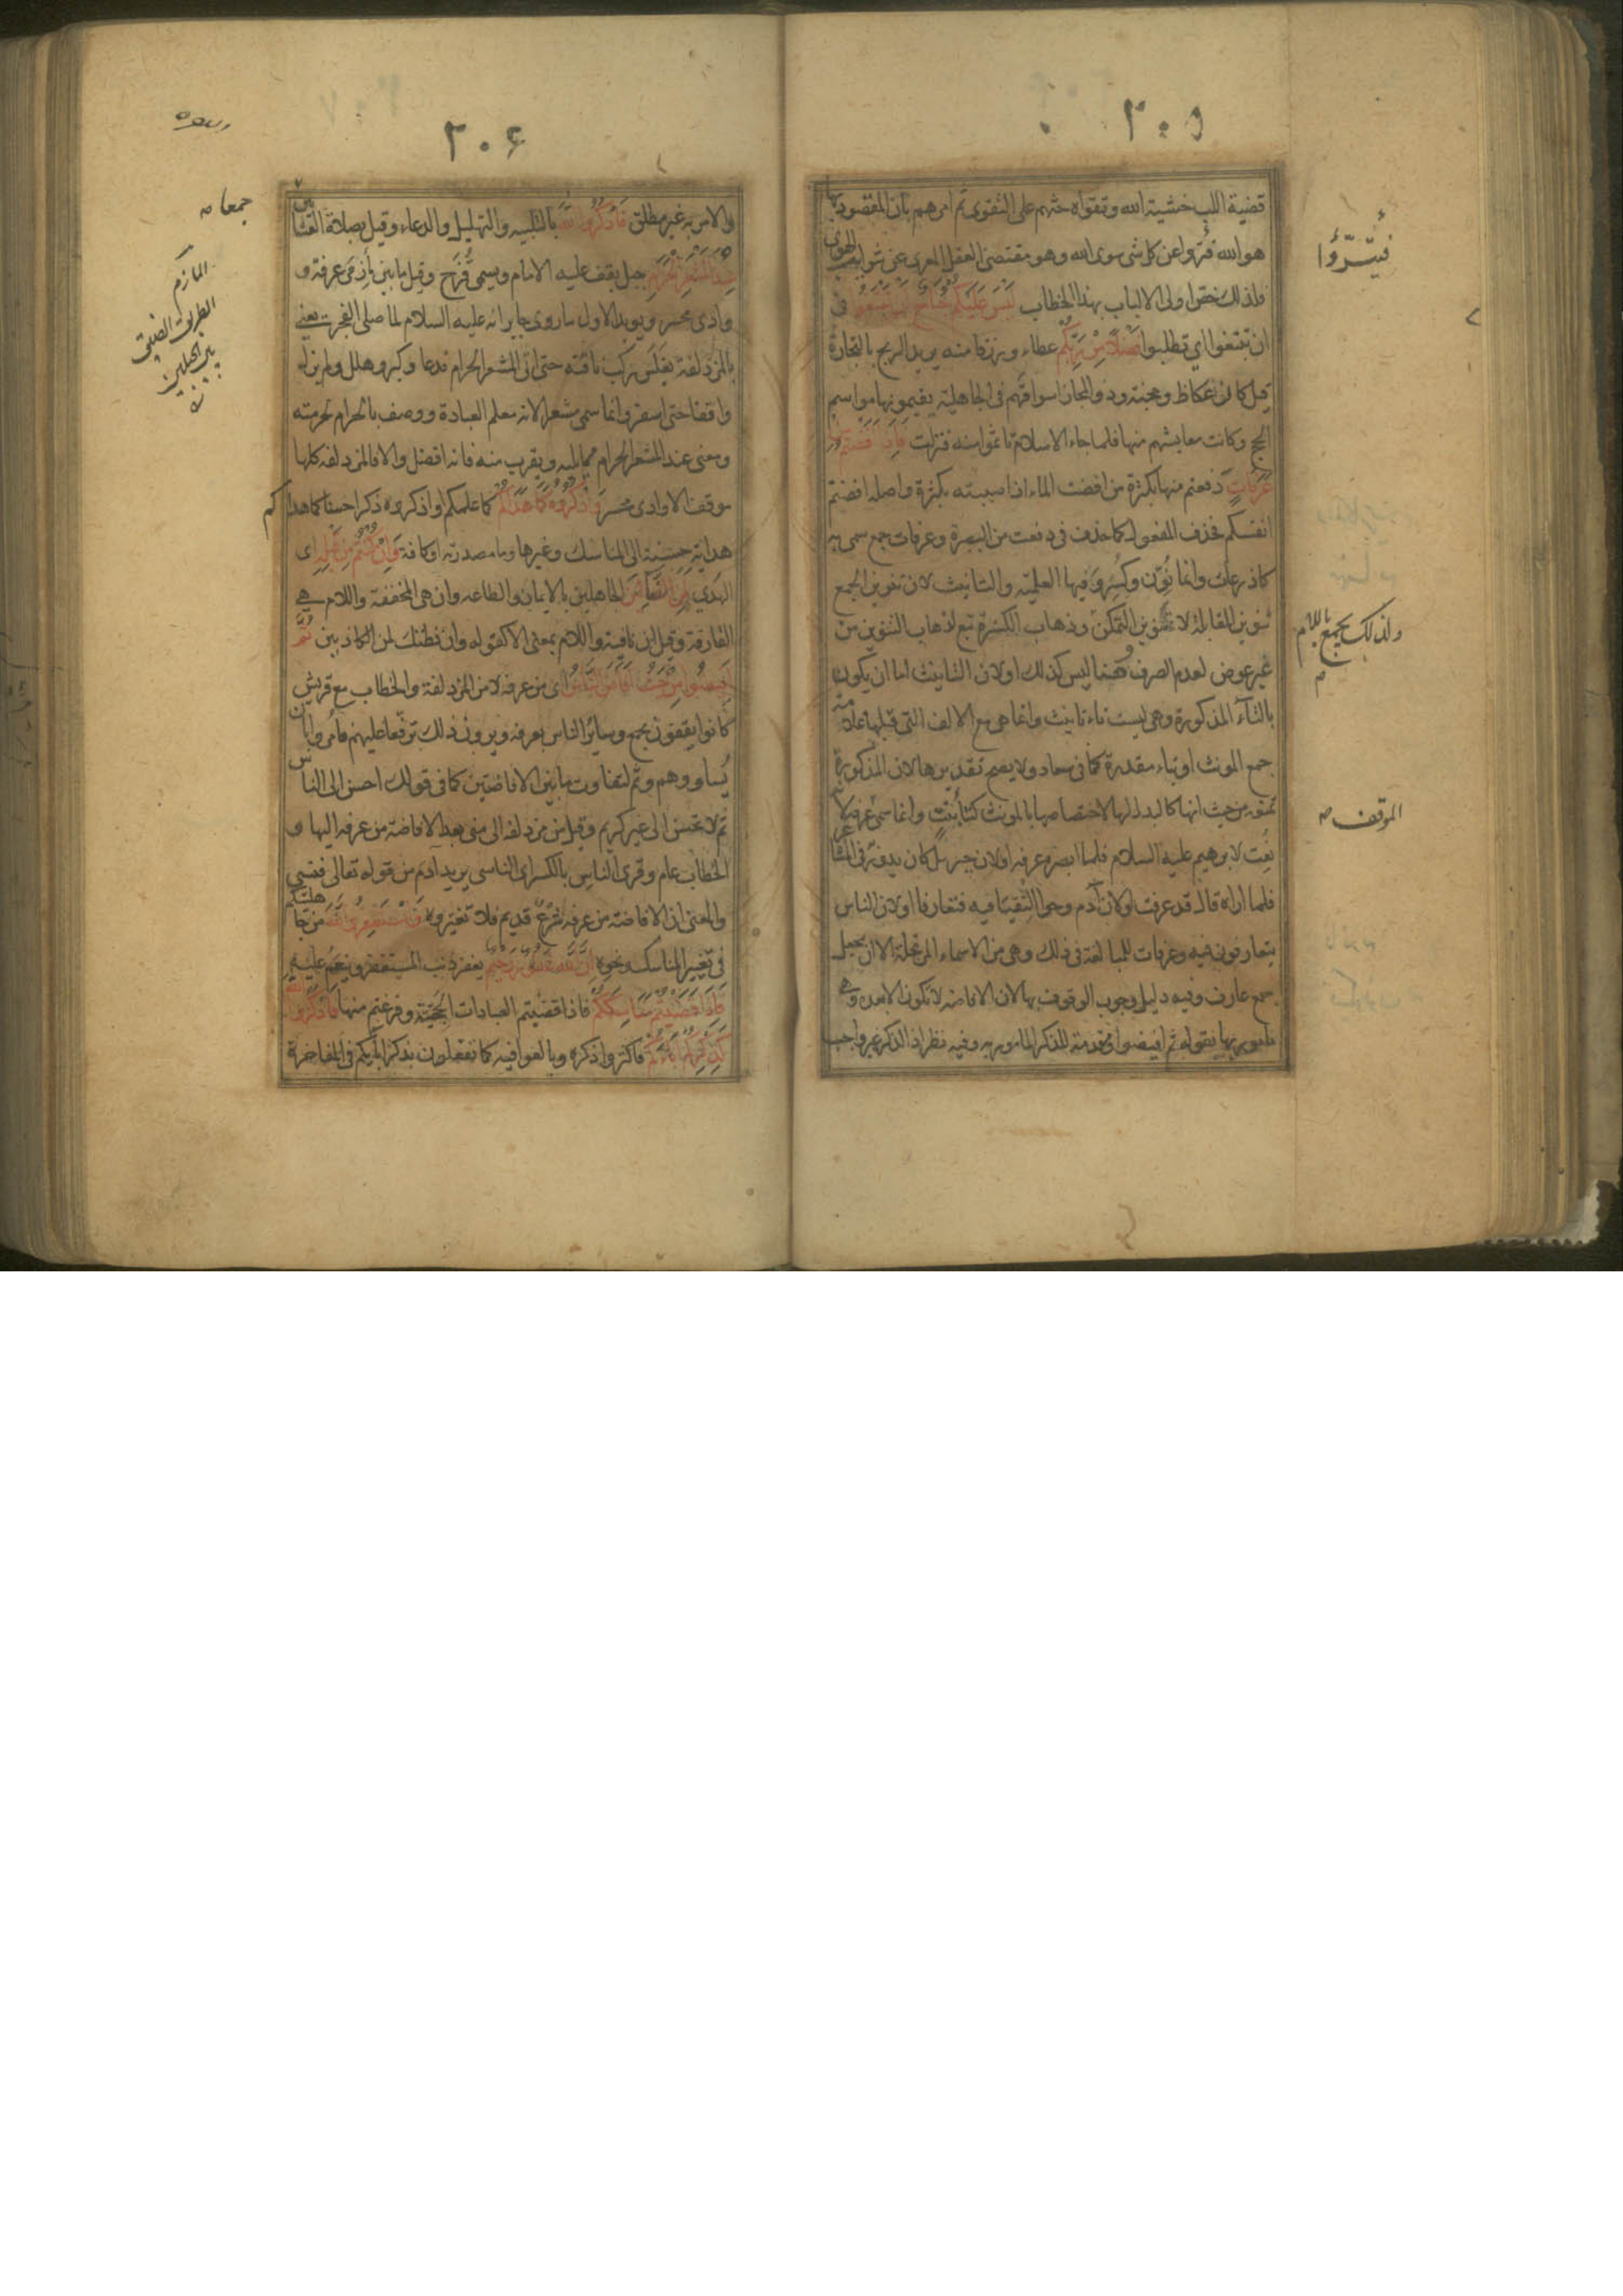 ٢٠٥
قضية اللب خشية الله وتقواه حثهم على التقوى ثم امرهم بان المقصود بها
هو الله فتبرؤا عن كل شى سوى الله وهو مقتضى العقل المعرى عن شوايب الهوى
فلذلك خص اولى الالباب بهذا الخطاب لَيْسَ عَلَيْكُمْ جُنَاحٌ اَنْ تَبْتَغُوا فى
ان تبتغوا اي تطلبوا فَضْلًا مِنْ رَبِّكُمْ عطاء ورزقا منه يريد الربح بالتجارة
قيل كان عكاظ ومجنة وذو المجاز اسواقهم فى الجاهلية يقيمونها مواسم
الحج وكانت معايشهم منها فلما جاء الاسلام تأثموا منه فنزلت فَاِذَا اَفَضْتُمْ مِنْ
عَرَفَاتٍ دفعتم منها بكثرة من افضت الماء اذا صببته بكثرة واصله افضتم
انفسكم فحذف المفعول كما حذف فى دفعت من البصرة وعرفات جمع سمى به
كاذرعات وانما نُوّن وكُسِر وفيها العلمية والتانيث لان تنوين الجمع
تنوين المقابلة لا تنوين التمكن وذهاب الكسرة تبع لذهاب التنوين من
غير عوض لعدم الصرف وههنا ليس كذلك اولان التانيث اما ان يكون
بالتاء المذكورة وهى ليست تاء تانيث وانما هى مع الالف التى قبلها علامة
جمع المونث اوبتاء مقدرة كما فى سعاد ولا يصح تقديرها لان المذكورة
تمنعه من حيث انها كالبدل لها لاختصاصها بالمونث كتاء بنت وانما سمى عرفة لانه
نُعِت لابرهيم عليه السلام فلما ابصره عرفه اولان جبريل كان يدور به فى المشاعر
فلما اراه قال قد عرفت اولان آدم وحوا التقيا فيه فتعارفا اولان الناس
يتعارفون فيه وعرفات للمبالغة فى ذلك وهى من الاسماء المرتجلة الا ان يجعل
جمع عارف وفيه دليل وجوب الوقوف بها لان الافاضة لا تكون الا بعده وهى
مامور بها بقوله ثم افيضوا او مقدمة للذكر المامور به وفيه نظر اذ الذكر غير واجب
فيتبرّؤا
ولذلك يجمع باللام
م
الموقف صه
٢٠۶
والامر به غير مطلق فَاذْكُرُوا اللّٰهَ بالتلبيه والتهليل والدعاء وقيل بصلاة العشائين
عِنْدَ الْمَشْعَرِ الْحَرَامِ جبل يقف عليه الامام ويسمى قُزَح وقيل ما بين مأزمى عرفة و
وادى محسر ويويد الاول ما روى جابر انه عليه السلام لما صلى الفجر يعنى
بالمزدلفة بغلس ركب ناقته حتى اتى المشعر الحرام فدعا وكبر وهلل ولم يزل
واقفا حتى اسفر وانما سمى مشعرا لانه معلم العبادة ووصف بالحرام لحرمته
ومعنى عند المشعر الحرام مما يليه ويقرب منه فانه افضل والا فالمزدلفه كلها
موقف الا وادى محسر وَاذْكُرُوهُ كَمَا هَدٰىكُمْ كما علمكم او اذكروه ذكرا حسنا كما هداكم
هداية حسنة الى المناسك وغيرها وما مصدرية او كافة وَاِنْ كُنْتُمْ مِنْ قَبْلِهِ اى
الهدى لَمِنَ الضَّآلِّينَ الجاهلين بالايمان والطاعه وان هى المخففة واللام هى
الفارقة وقيل ان نافية واللام بمعنى الا كقوله وان نظنك لمن الكاذبين ثُمَّ
اَفِيضُوا مِنْ حَيْثُ اَفَاضَ النَّاسُ اى من عرفه لا من المزدلفة والخطاب مع قريش
كانوا يقفون بجمع وساير الناس بعرفه ويرون ذلك ترفعا عليهم فامروا بان
يساووهم وثم لتفاوت ما بين الافاضتين كما فى قولك احسن الى الناس
ثم لا تحسن الى غير كريم وقيل من مزدلفه الى منى بعد الافاضة من عرفه اليها و
الخطاب عام وقرئ الناسِ بالكسر اى الناسى يريد آدم من قوله تعالى فنسى
والمعنى ان الافاضة من عرفه شرع قديم فلا تغيروه وَاسْتَغْفِرُوا اللّٰهَ من جاهليتكم
فى تغيير المناسك ونحوه اِنَّ اللّٰهَ غَفُورٌ رَحِيمٌ يغفر ذنب المستغفر وينعم عليه
فَاِذَا قَضَيْتُمْ مَنَاسِكَكُمْ فاذا قضيتم العبادات الحجية وفرغتم منها فَاذْكُرُوا اللّٰهَ
كَذِكْرِكُمْ اٰبَآءَكُمْ فاكثروا ذكره وبالغوا فيه كما تفعلون بذكر آبائكم فى المفاخرة
جمعا صه
المازم
الطريق الضيق
بين الجبلين